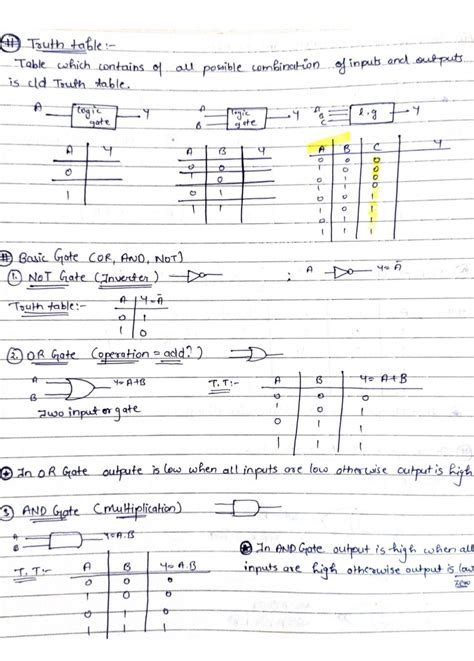 # Truth table:-
Table which contains of all possible combination of inputs and outputs
is c/d Truth table.
A logic gate Y
A B logic gate Y
A B C l.g Y
A Y
0
1
A B Y
0 0
0 1
1 0
1 1
A B C Y
0 0 0
0 0
0
1
1
# Basic Gate (OR, AND, NOT)
1. NOT Gate (Inverter) ; A Y=Ā
Truth table:- A Y=Ā
0 1
1 0
2. OR Gate (operation = add?)
A B Y=A+B
Two input or gate
T.T:- A B Y=A+B
0 0 0
0 1 1
1 0 1
1 1 1
In OR Gate outpute is low when all inputs are low otherwise output is high
3. AND Gate (Multiplication)
A B Y=A.B
T.T:- A B Y=A.B
0 0 0
1 0 0
0 1 0
1 1 1
In AND Gate output is high when all
inputs are high otherwise output is low
zero